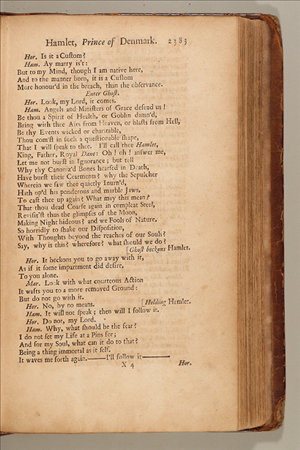 Hamlet, Prince of Denmark. 2383
Hor. Is it a Custom?
Ham. Ay marry is't:
But to my Mind, though I am native here,
And to the manner born, it is a Custom
More honour'd in the breach, than the observance.
Enter Ghost.
Hor. Look, my Lord, it comes.
Ham. Angels and Ministers of Grace defend us!
Be thou a Spirit of Health, or Goblin damn'd,
Bring with thee Airs from Heaven, or blasts from Hell,
Be thy Events wicked or charitable,
Thou com'st in such a questionable shape,
That I will speak to thee. I'll call thee Hamlet,
King, Father, Royal Dane: Oh! oh! answer me,
Let me not burst in Ignorance; but tell
Why thy Canoniz'd Bones hearsed in Death,
Have burst their Cearments? why the Sepulcher
Wherein we saw thee quietly Inurn'd,
Hath op'd his ponderous and marble Jaws,
To cast thee up again? What may this mean?
That thou dead Coarse again in compleat Steel,
Revisit'st thus the glimpses of the Moon,
Making Night hideous? and we Fools of Nature,
So horridly to shake our Disposition,
With Thoughts beyond the reaches of our Souls?
Say, why is this? wherefore? what should we do?
[Ghost beckons Hamlet.
Hor. It beckons you to go away with it,
As if it some impartment did desire,
To you alone.
Mar. Look with what courteous Action
It wafts you to a more removed Ground:
But do not go with it.
Hor. No, by no means. [Holding Hamlet.
Ham. It will not speak; then will I follow it.
Hor. Do not, my Lord.
Ham. Why, what should be the fear?
I do not set my Life at a Pins fee;
And for my Soul, what can it do to that?
Being a thing immortal as it self.
It waves me forth again.——I'll follow it——
X 4 Hor.